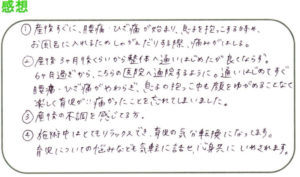 感想
① 産後すぐに、腰痛・ひざ痛が始まり、息子を抱っこする時や、
お風呂に入れるためしゃがんだりする際、痛みがでましょ。
② 産後3ヶ月後くらいから整体へ通いはじめたが良くならず。
6ヶ月過ぎから、こちらの医院へ通院するように。通いはじめてすぐ
腰痛・ひざ痛がやわらぎ、息子の抱っこ中も顔をゆがめることなく
楽しく育児が… 痛かったことを忘れてしまいました。
③ 産後の不調を感じてる方。
④ 施術中はとてもリラックスでき、育児の気分転換になってます。
育児についての悩みなども気軽に話せ、心身共に いやされます。